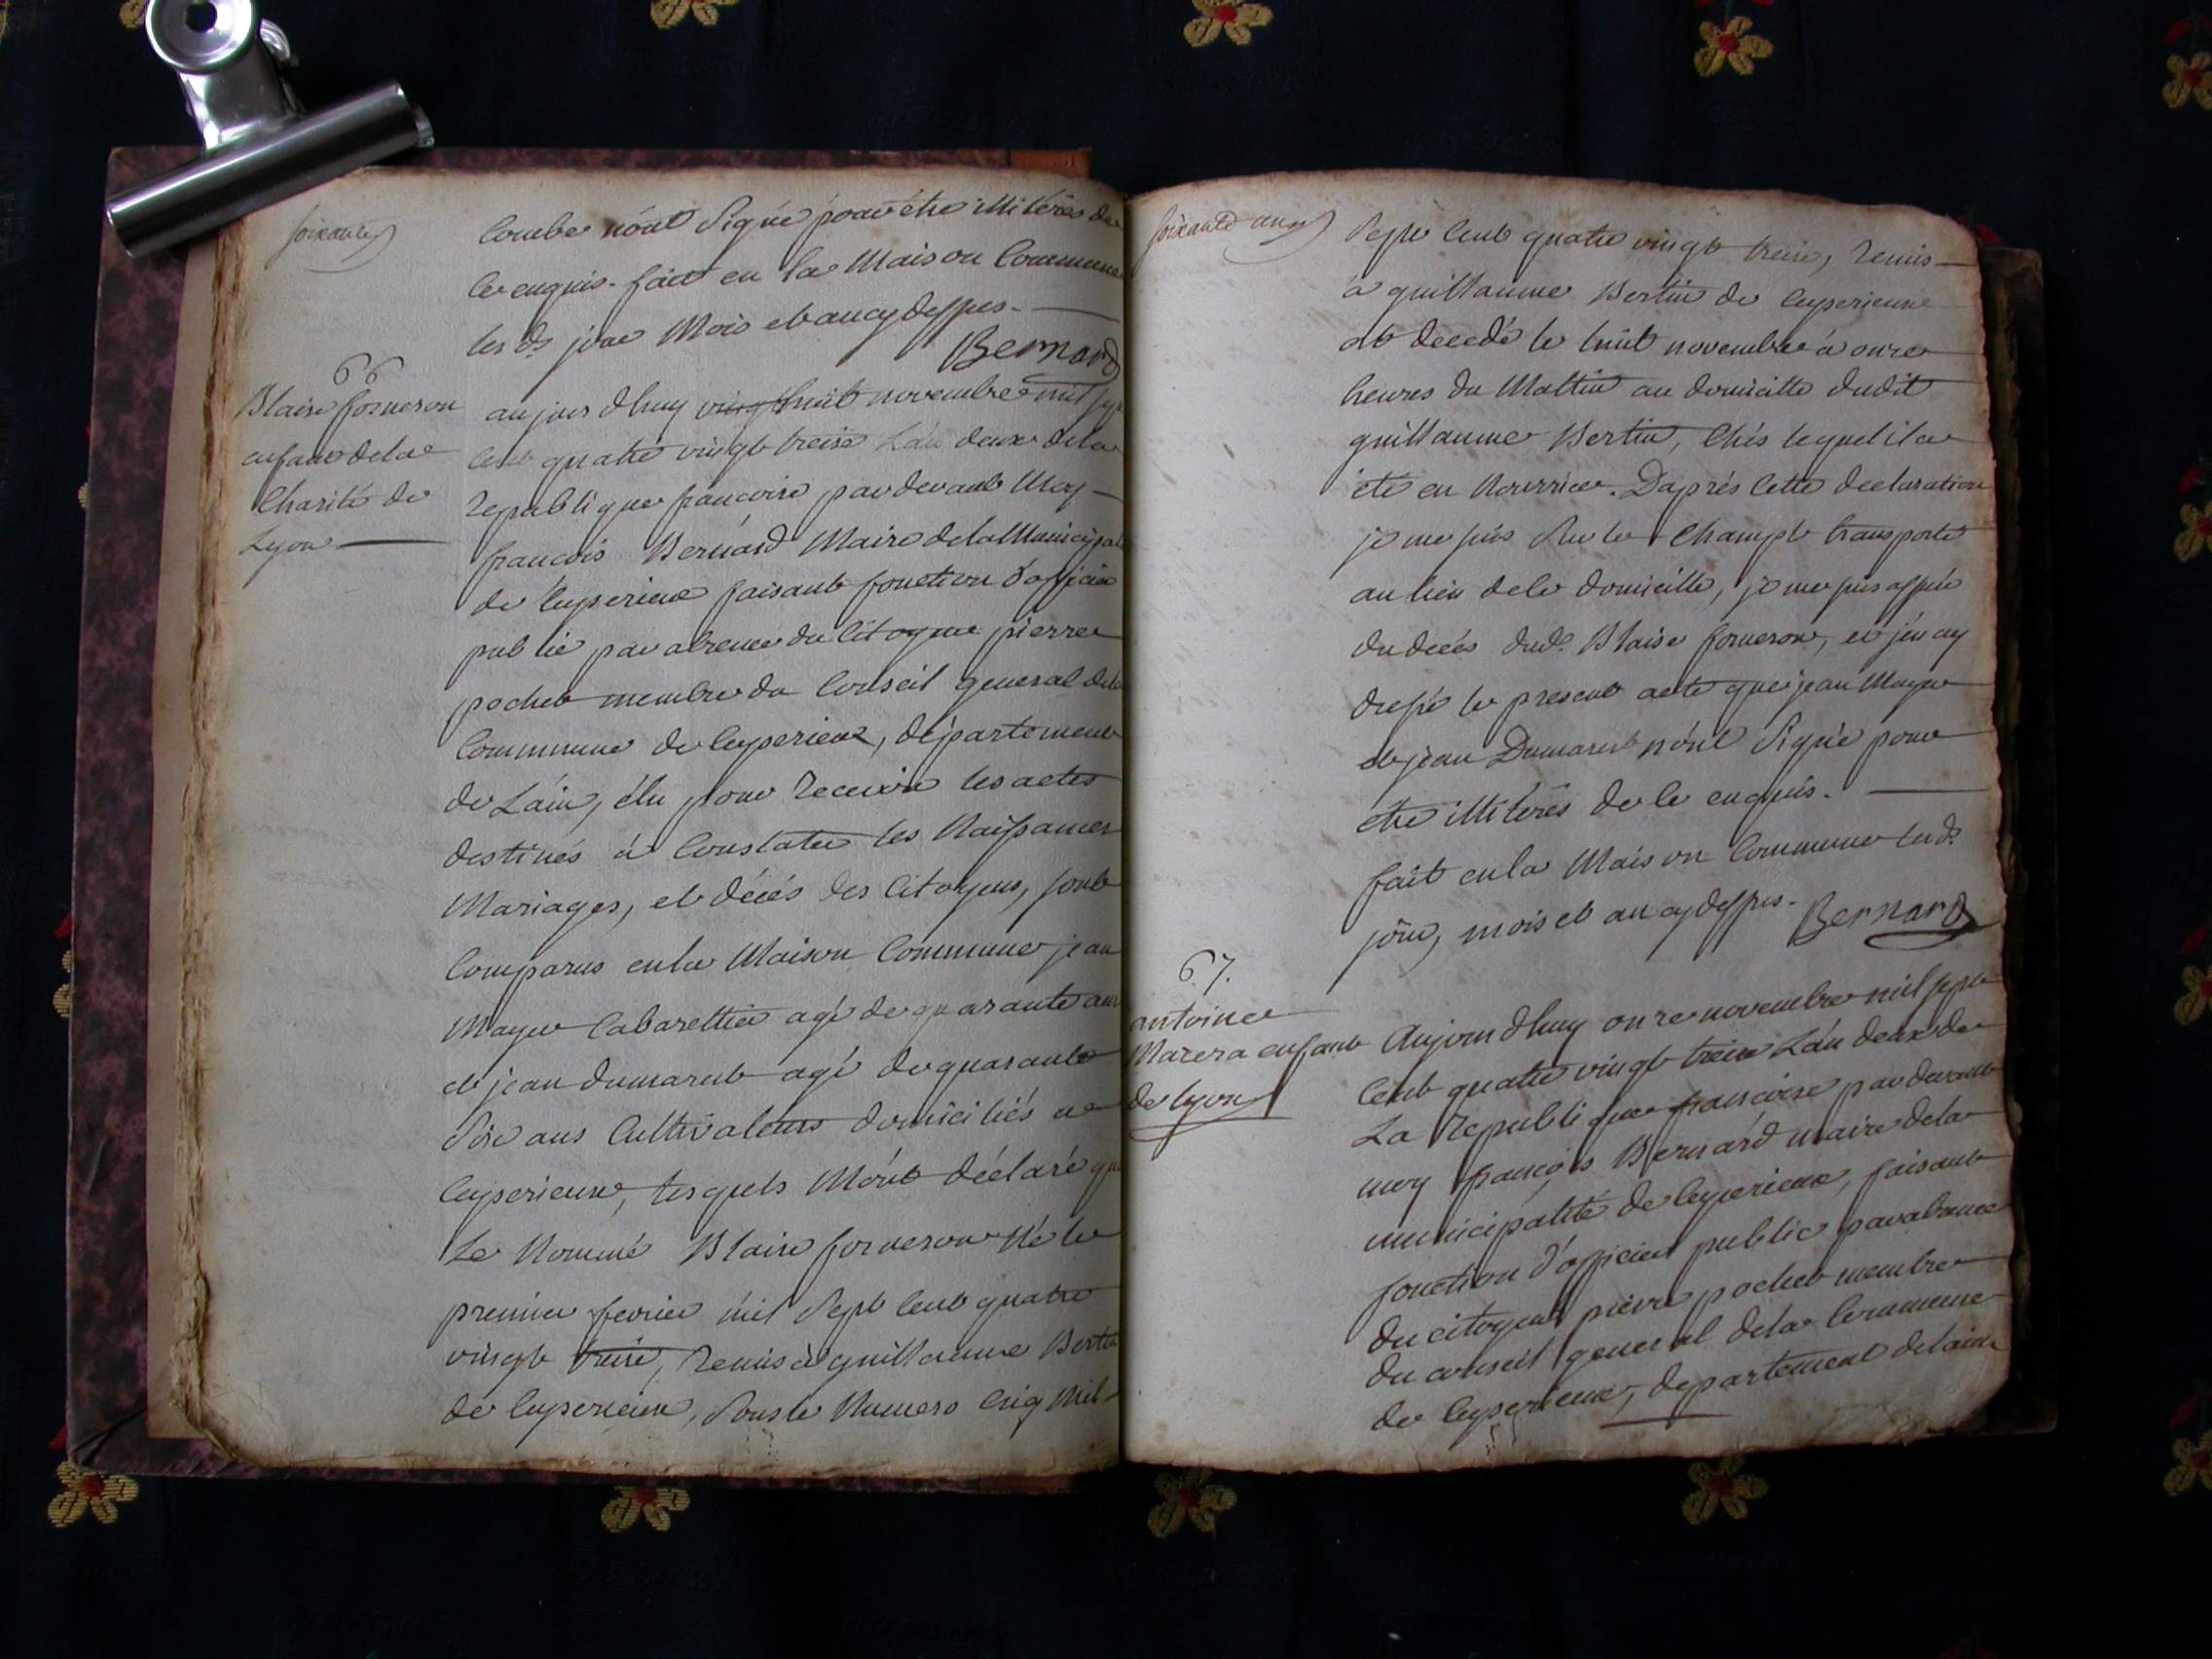 soixante
Combe n'ont Signé pour être illiterés de
ce enquis. fait en la Maison Commune
les ds jour Mois et an cy dessus.
Bernard
66
Blaise forneron
enfant de la
Charité de
Lyon
aujourdhuy vingt huit novembre mil sept
Cent quatre vingt treise L'an deux de la
republique francoise par devant Moy
francois Bernard Maire de la Municipal
de Ceyserieux faisant fonction d'officier
public par absence du Citoyen pierre
pochet membre du Conseil general de la
Commune de Ceyserieux, département
de L'ain, élu pour recevoir les actes
destinés à Constater les Naissances
Mariages, et décés des Citoyens, sont
Comparus en la Maison Commune jean
Mayer Cabarettier agé de quarante ans
et jean dumarest agé de quarante
Six ans Cultivateurs domiciliés a
Ceyserieux, lesquels M'ont déclaré que
Le Nommé Blaise forneron Né le
premier fevrier mil Sept Cent quatre
vingt treise, remis à guillaume Bertin
de Ceyserieux, Sous le Numero Cinq Mil
soixante une
Sept Cent quatre vingt treise, remis
à guillaume Bertin de Ceyserieux
est decedé le huit novembre à onze
heures du Mattin au domicille dudit
guillaume Bertin, Chés lequel il a
été en Nourrice. D'aprés Cette declaration
je me suis Sur le Champt transporté
au lieu de ce domicille, je me suis assuré
du decés dud. Blaise forneron, et j'en ay
dressé le present acte que jean Mayer
et jean Dumarest n'ont Signé pour
etre illiterés de ce enquis.
fait en la Maison Commune les ds.
jour, mois et an cy dessus. Bernard
67.
antoine
Mazera enfant
de lyon
Aujourdhuy onze novembre mil sept
Cent quatre vingt treise L'an deux de
La republique francoise par devant
moy françois Bernard maire de la
municipalité de Ceyserieux, faisant
fonction d'officier public par absence
du citoyen pierre pochet membre
du conseil general de la Commune
de Ceyserieux, departement de lain